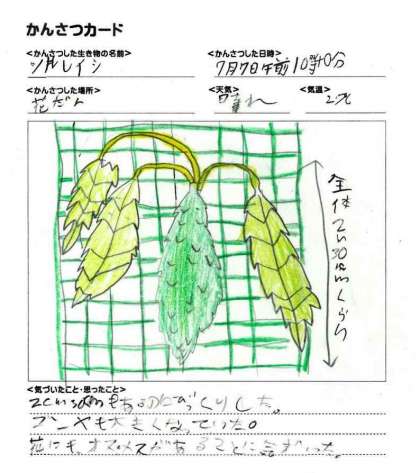 かんさつカード
<かんさつした生き物の名前>
ツルレイシ
<かんさつした日時>
7月7日午前10時40分
<かんさつした場所>
花だん
<天気>
晴れ
<気温>
全体2m30cmくらい
<気づいたこと・思ったこと>
2m30cmもあるのにびっくりした。
大きくなっていた。
花にも、オスメスがあることに気づいた。